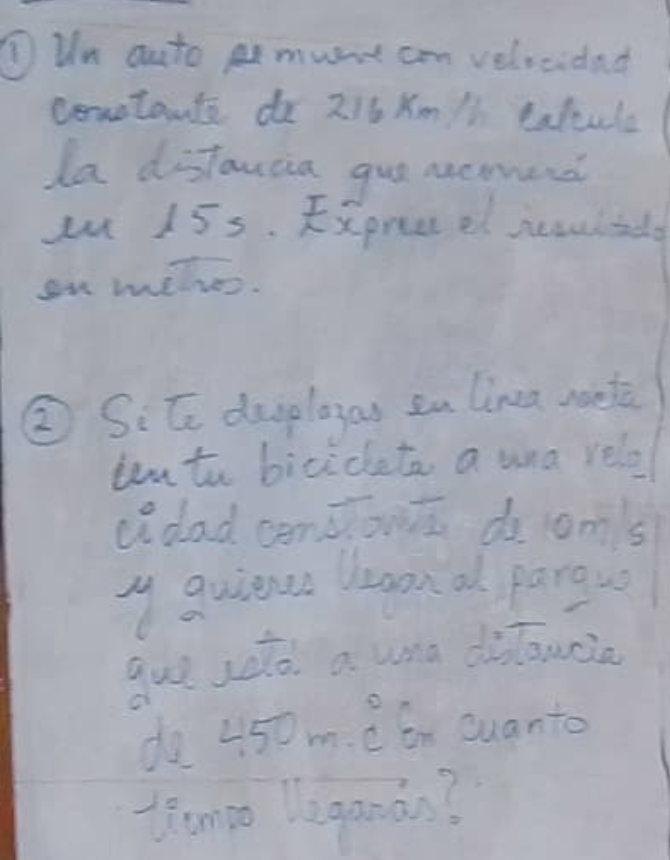 ① Un auto se mueve con velocidad
constante de 216 Km/h calcule
la distancia que recorrerá
en 15s. Exprese el resultado
en metros.
② Si te desplazas en línea recta
en tu bicicleta a una velo
cidad constante de 10m/s
y quieres llegar al parque
que está a una distancia
de 450 m. ¿ En cuanto
tiempo llegarás?